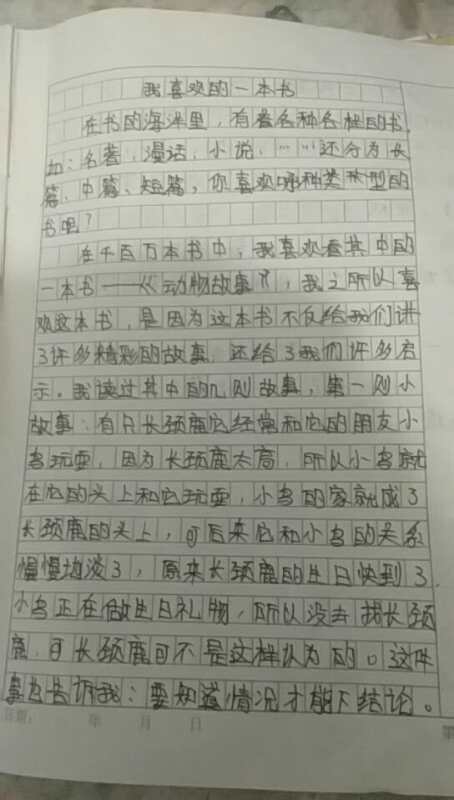 我喜欢的一本书
在书的海洋里，有着各种各样的书，
如：名著、漫话、小说、……还分为长
篇、中篇、短篇，你喜欢哪种类型的
书呢？
在千百万本书中，我喜欢看其中的
一本书——《动物故事》，我之所以喜
欢这本书，是因为这本书不仅给我们讲
了许多精彩的故事，还给了我们许多启
示。我读过其中的几则故事，第一则小
故事：有只长颈鹿它经常和它的朋友小
鸟玩耍，因为长颈鹿太高，所以小鸟就
在它的头上和它玩耍，小鸟的家就成了
长颈鹿的头上，可后来它和小鸟的关系
慢慢地淡了，原来长颈鹿的生日快到了，
小鸟正在做生日礼物，所以没去找长颈
鹿，可长颈鹿可不是这样认为的。这件
事告诉我：要知道情况才能下结论。
年 月 日
第